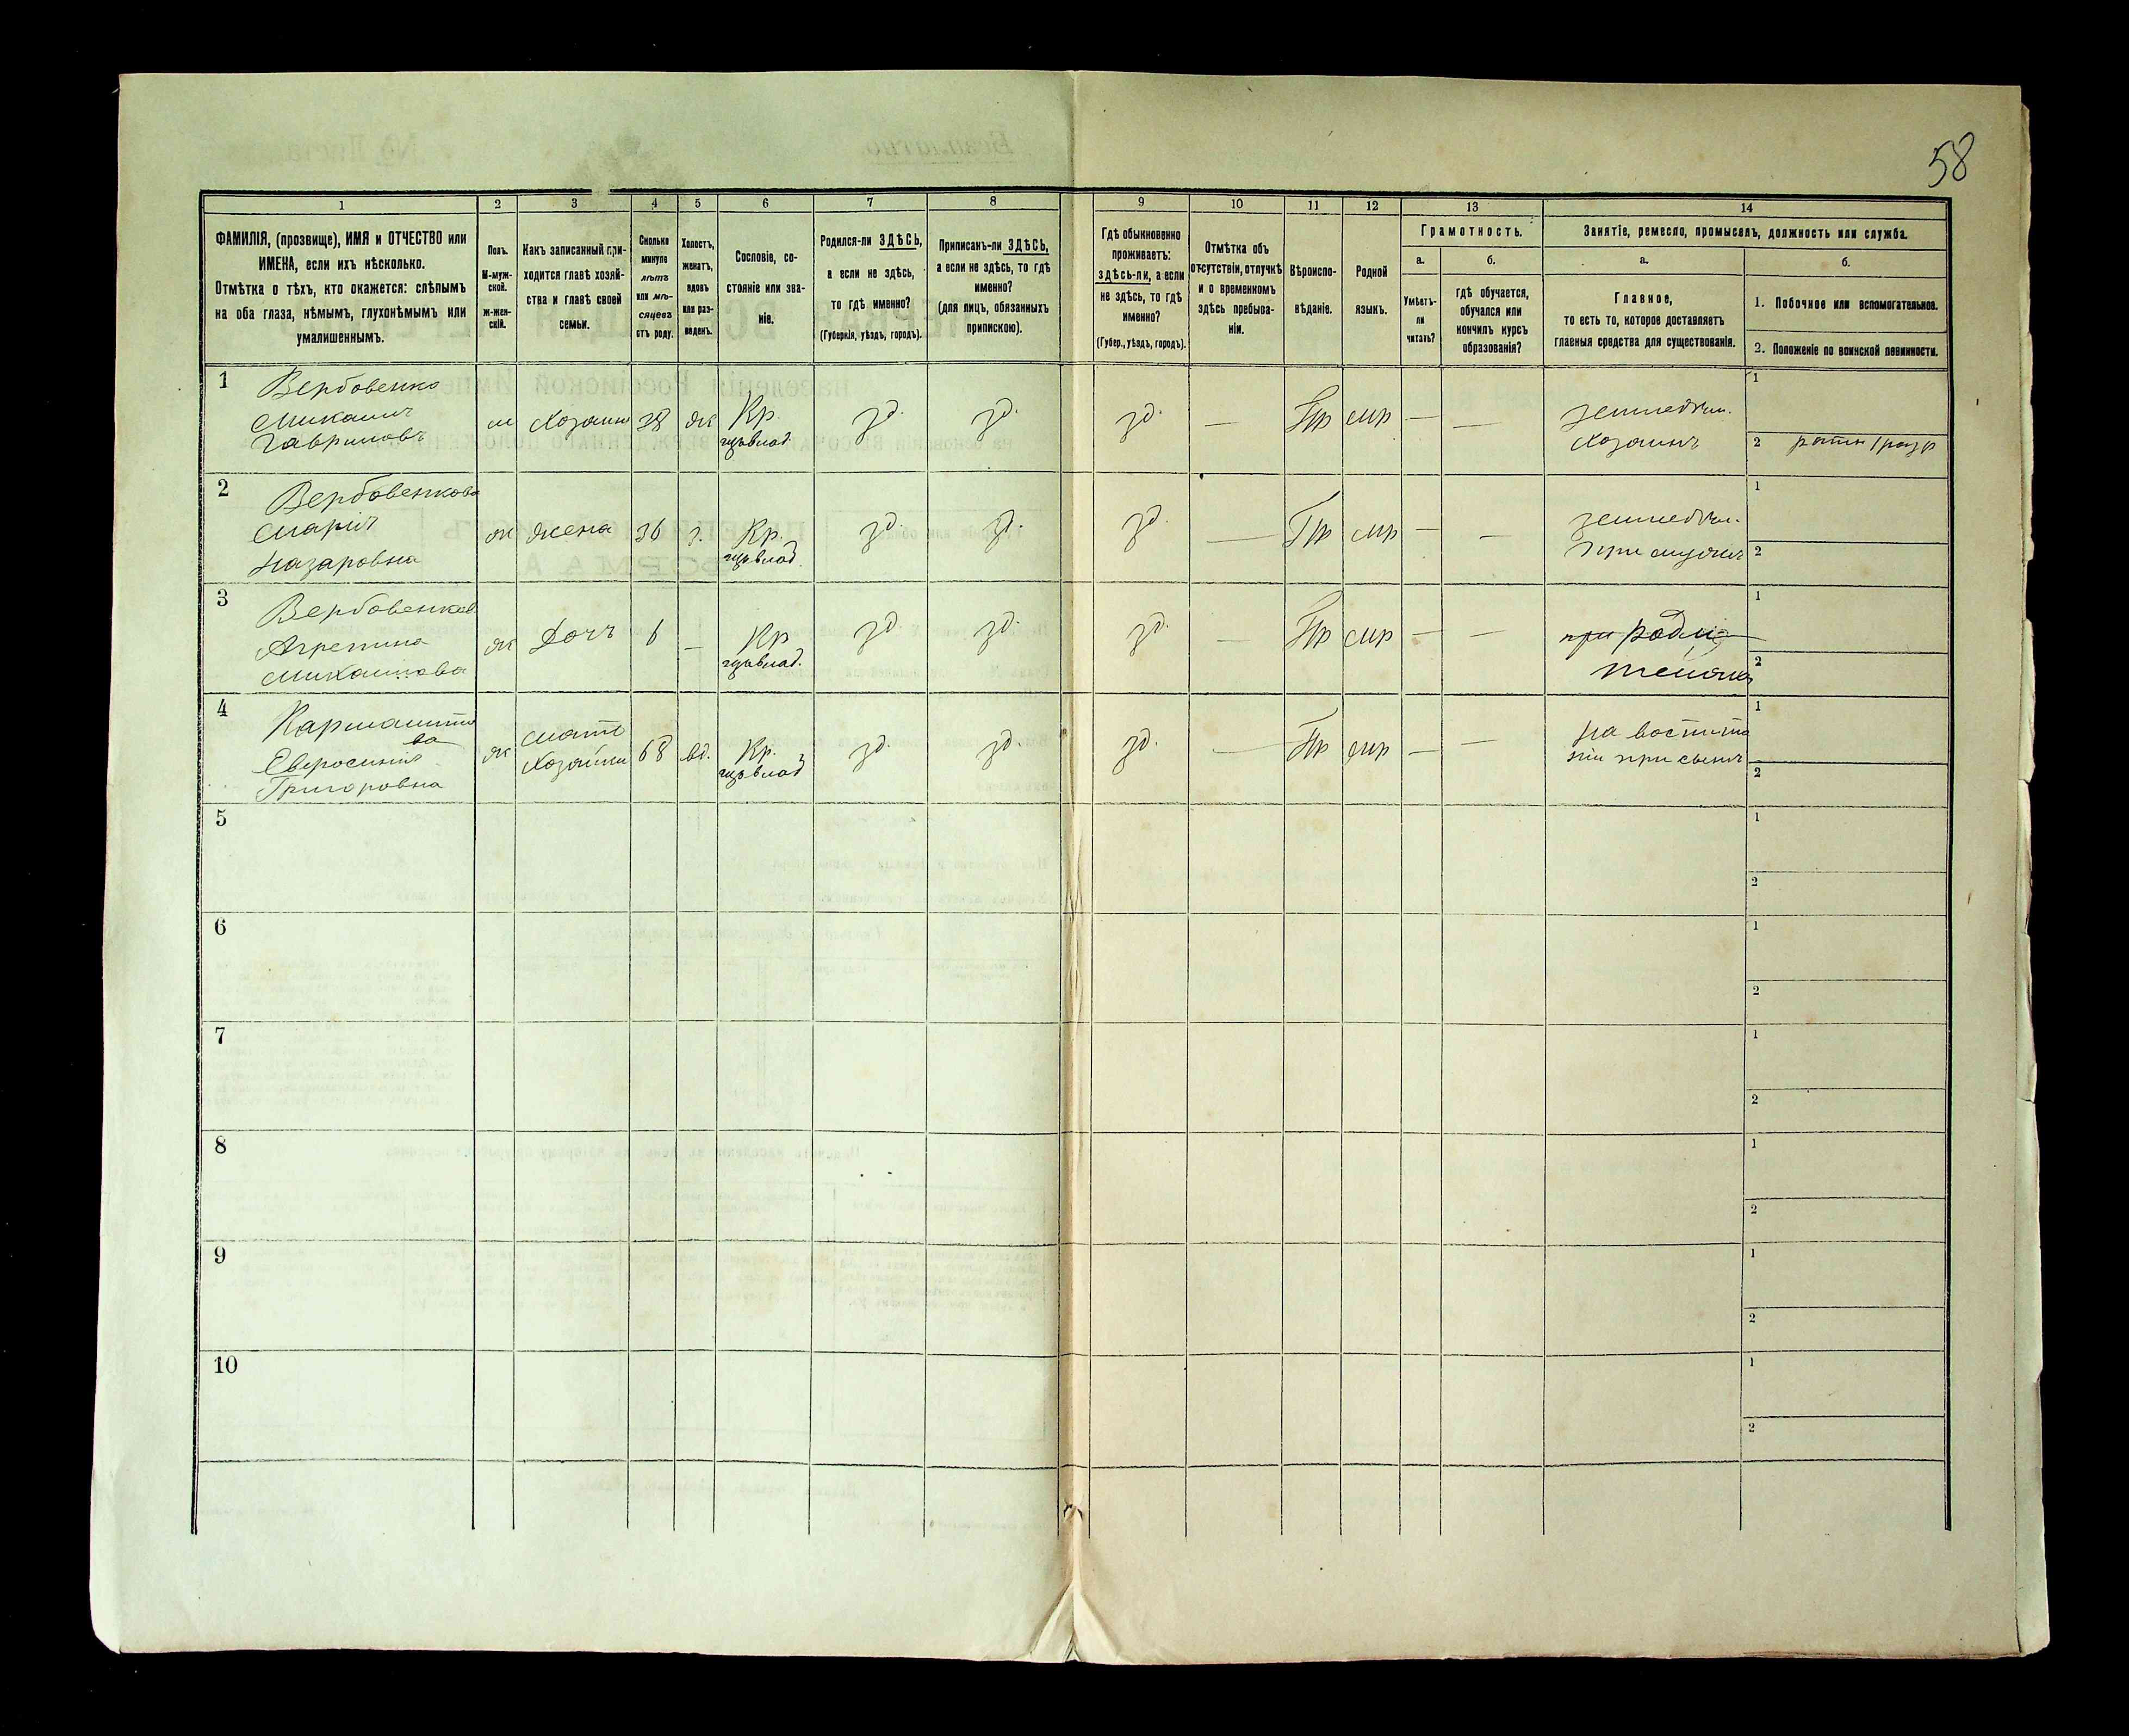 58
1 2 3 4 5 6 7 8 9 10 11 12 13 14
ФАМИЛІЯ, (прозвище), ИМЯ и ОТЧЕСТВО или
ИМЕНА, если ихъ нѣсколько.
Отмѣтка о тѣхъ, кто окажется: слѣпымъ
на оба глаза, нѣмымъ, глухонѣмымъ или
умалишеннымъ.
Полъ.
М-муж-
ской.
ж-жен-
скій.
Какъ записанный при-
ходится главѣ хозяй-
ства и главѣ своей
семьи.
Сколько
минуло
лѣтъ
или мѣ-
сяцевъ
отъ роду.
Холостъ,
женатъ,
вдовъ
или раз-
веденъ.
Сословіе, со-
стояніе или зва-
ніе.
Родился-ли ЗДѢСЬ,
а если не здѣсь,
то гдѣ именно?
(Губернія, уѣздъ, городъ).
Приписанъ-ли ЗДѢСЬ,
а если не здѣсь, то гдѣ
именно?
(для лицъ, обязанныхъ
припискою).
Гдѣ обыкновенно
проживаетъ:
здѣсь-ли, а если
не здѣсь, то гдѣ
именно?
(Губер., уѣздъ, городъ).
Отмѣтка объ
отсутствіи, отлучкѣ
и о временномъ
здѣсь пребыва-
ніи.
Вѣроиспо-
вѣданіе.
Родной
языкъ.
Грамотность.
а.
Умѣетъ-
ли
читать?
б.
гдѣ обучается,
обучался или
кончилъ курсъ
образованія?
Занятіе, ремесло, промыселъ, должность или служба.
а.
Главное,
то есть то, которое доставляетъ
главныя средства для существованія.
б.
1. Побочное или вспомогательное.
2. Положеніе по воинской повинности.
1
Вербовенко
Михаилъ
Гавриловъ
м
Хозяинъ
38
ж
Кр.
зд.
зд.
зд.
—
Пр
мр
—
—
Хозяинъ
1
2
2
Вербовенкова
Марія
Назаровна
ж
жена
36
з.
Кр.
зд.
зд.
зд.
—
Пр
мр
—
—
при мужѣ
1
2
3
Вербовенков
Агрепина
Михаилова
ж
Дочь
6
—
Кр
зд.
зд.
зд.
—
Пр
мр
—
—
при роди
теляхъ
1
2
4
ва
Евросинія
Григоровна
ж
мать
68
вд.
Кр.
зд.
зд.
зд.
—
Пр
мр
—
—
на воспита
ніи при сынѣ
1
2
5
1
2
6
1
2
7
1
2
8
1
2
9
1
2
10
1
2